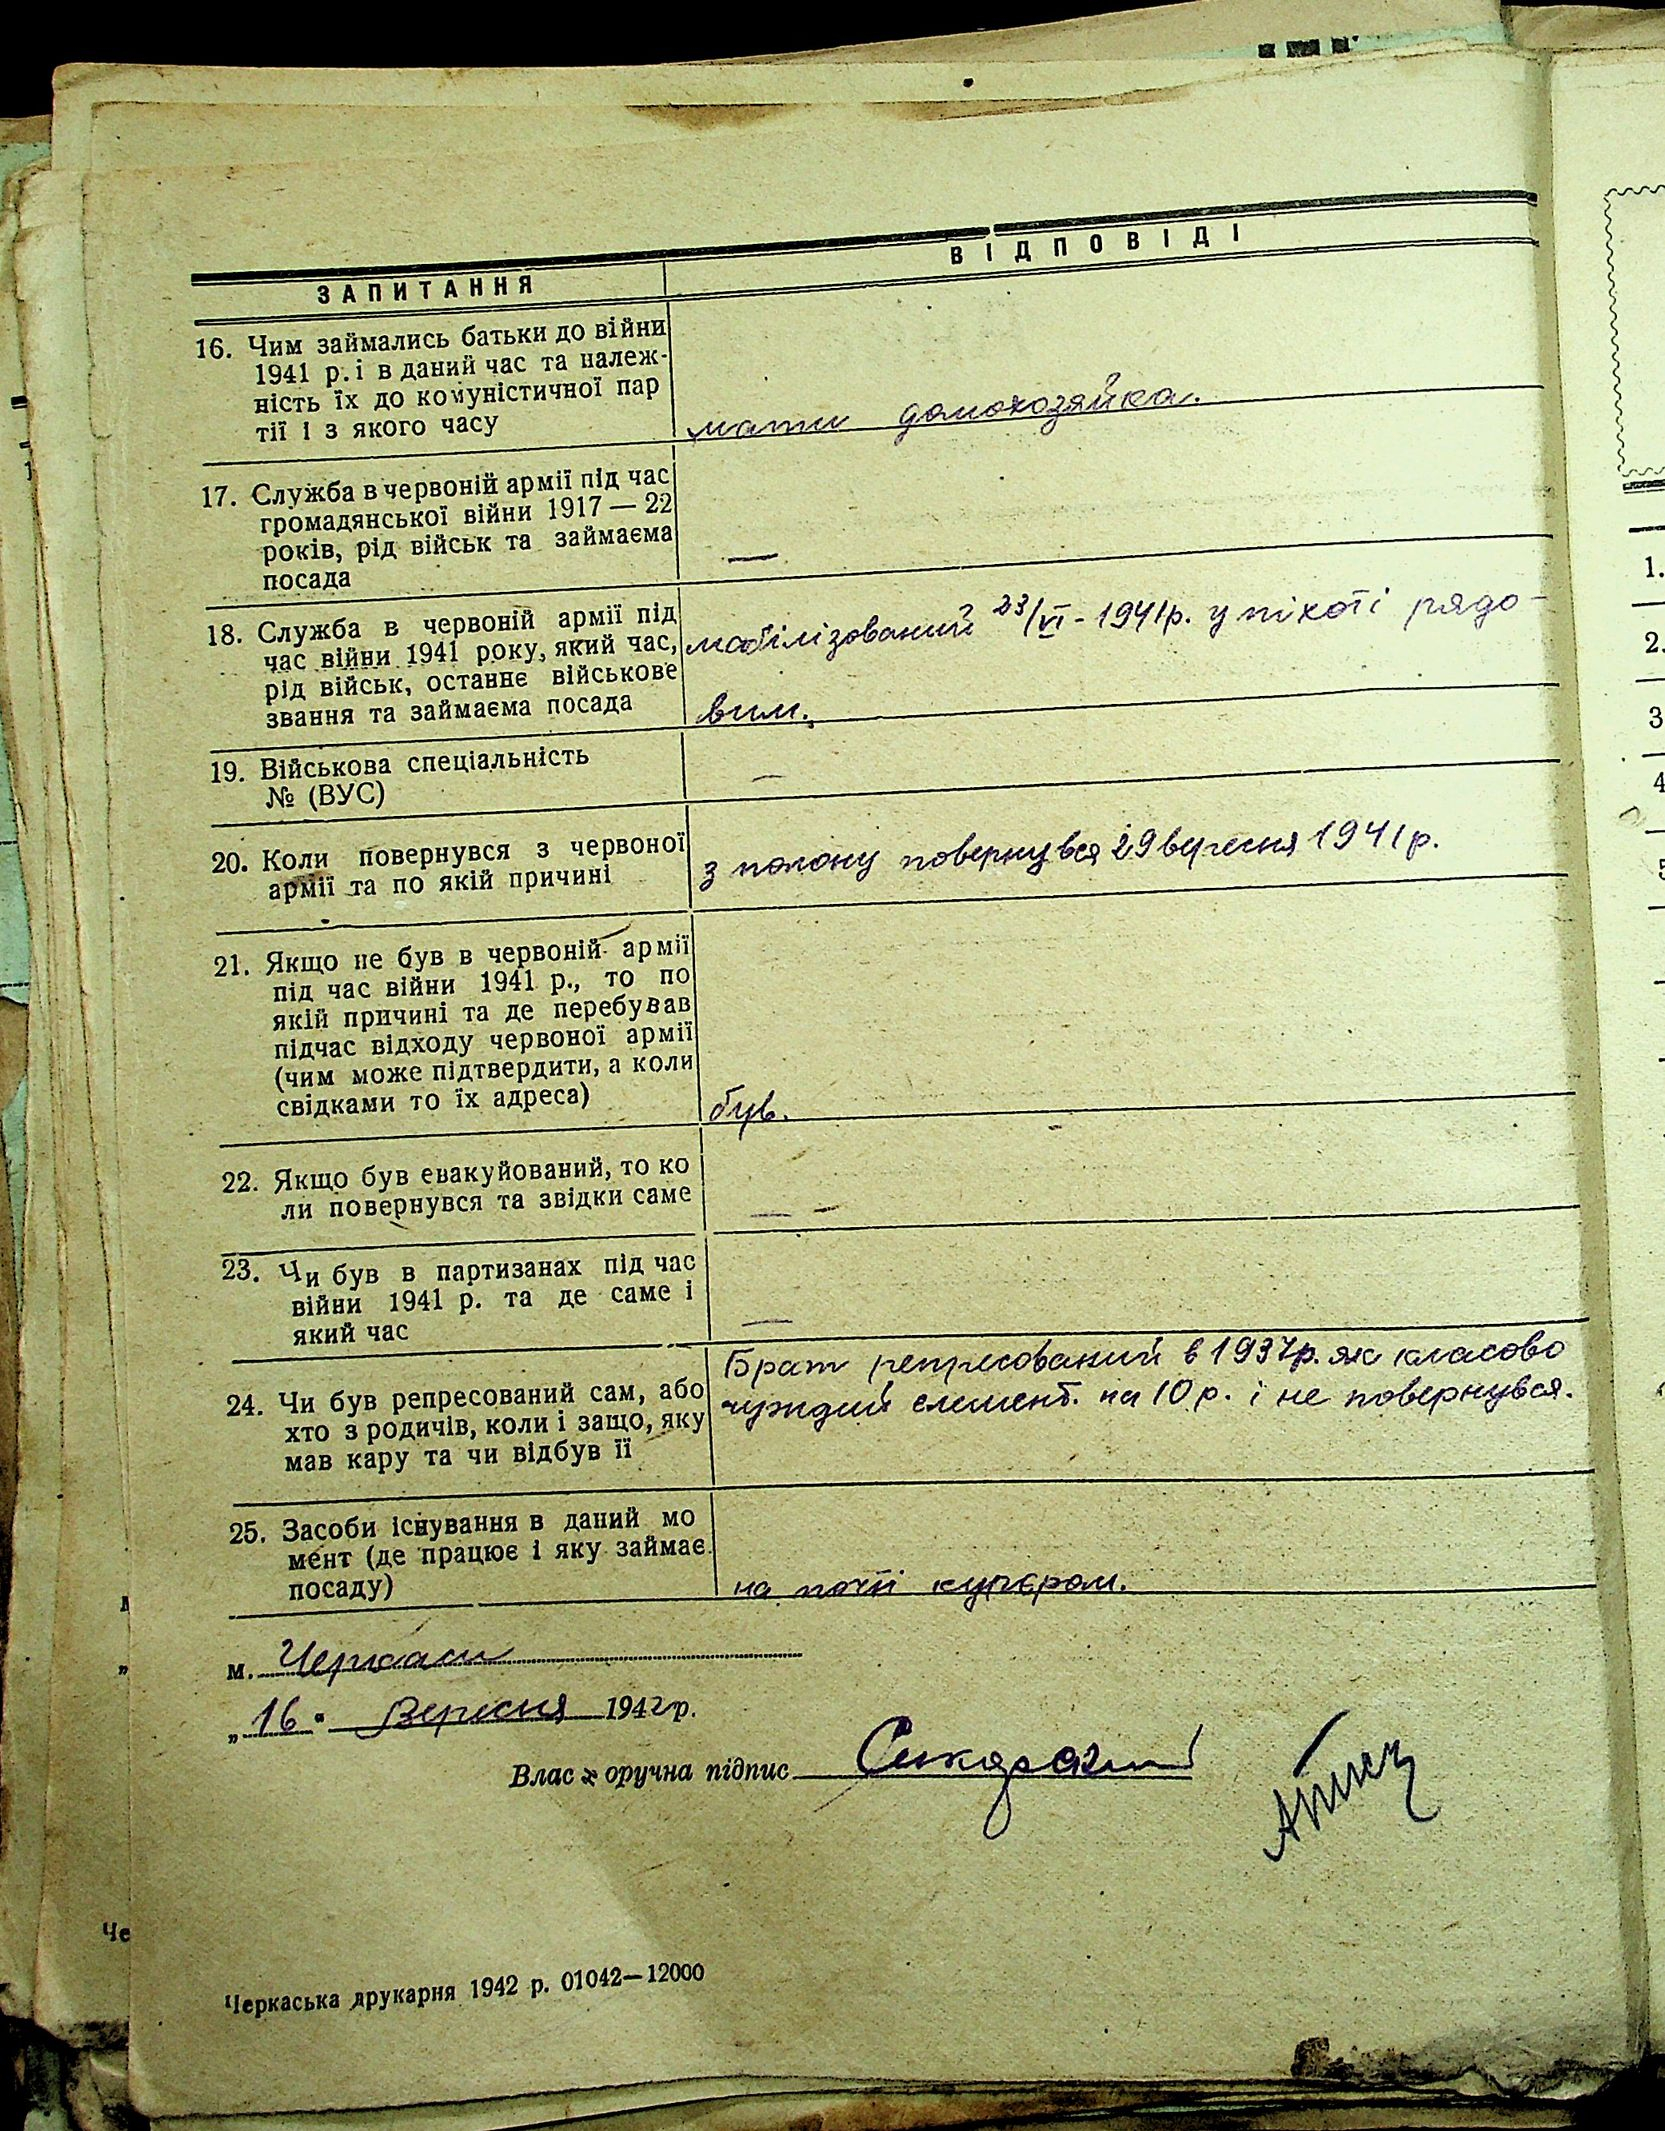 ЗАПИТАННЯ
ВІДПОВІДІ
16. Чим займались батьки до війни
1941 р. і в даний час та належ-
ність їх до комуністичної пар
тії і з якого часу
мати домохозяйка.
17. Служба в червоній армії під час
громадянської війни 1917 — 22
років, рід військ та займаєма
посада
—
18. Служба в червоній армії під
час війни 1941 року, який час,
рід військ, останнє військове
звання та займаєма посада
мобілізований 23/VI - 1941р. у піхоті рядо-
вим.
19. Військова спеціальність
№ (ВУС)
—
20. Коли повернувся з червоної
армії та по якій причині
з полону повернувся 29 вересня 1941р.
21. Якщо не був в червоній армії
під час війни 1941 р., то по
якій причині та де перебував
підчас відходу червоної армії
(чим може підтвердити, а коли
свідками то їх адреса)
був.
22. Якщо був евакуйований, то ко
ли повернувся та звідки саме
— -
23. Чи був в партизанах під час
війни 1941 р. та де саме і
який час
—
24. Чи був репресований сам, або
хто з родичів, коли і защо, яку
мав кару та чи відбув її
Брат репресований в 1937р. як класово
чуждий елемент. на 10 р. і не повернувся.
25. Засоби існування в даний мо
мент (де працює і яку займає
посаду)
на почті кучером.
м. Черкаси
„16" Вересня 1942р.
Влас оручна підпис
Черкаська друкарня 1942 р. 01042—12000
Че
1.
2.
3
4
5